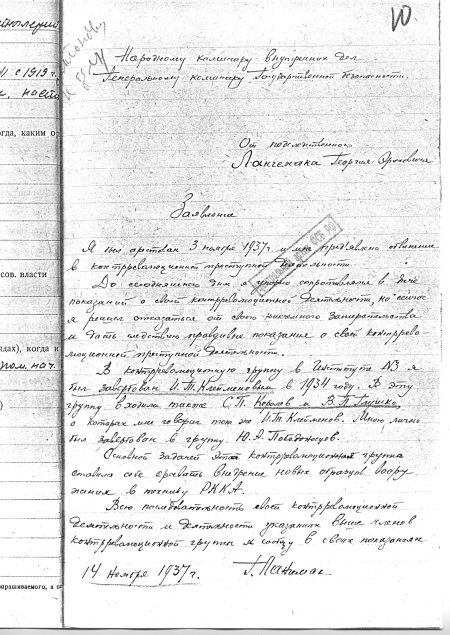 10
Народному комиссару внутренних дел
Генеральному комиссару Государственной безопасности
От подследственного
Лангемака Георгия Эриховича
Заявление
Я был арестован 3 ноября 1937г и мне предъявлено обвинение
в контрреволюционной преступной деятельности.
До сегодняшнего дня я упорно сопротивлялся в даче
показаний о своей контрреволюционной деятельности, но сейчас
я решил отказаться от своего ненужного запирательства
и дать следствию правдивые показания о своей контррево-
люционной преступной деятельности.
В контрреволюционную группу в Институте №3 я
был завербован И.Т. Клейменовым в 1934 году. В эту
группу входили также С.П. Королев и В.П. Глушко,
о которых мне говорил тот же И.Т. Клейменов. Мною лично
был завербован в группу Ю.А. Победоносцев.
Основной задачей этой контрреволюционная группа
ставила себе срывать внедрение новых образцов воору
жения в технику РККА.
Всю последовательность своей контрреволюционной
деятельности и деятельности указанных выше членов
контрреволюционной группы я сообщу в своих показаниях
14 ноября 1937г. Г. Лангемак
с 1919 г.
огда, каким о
сов. власти
дах), когда и